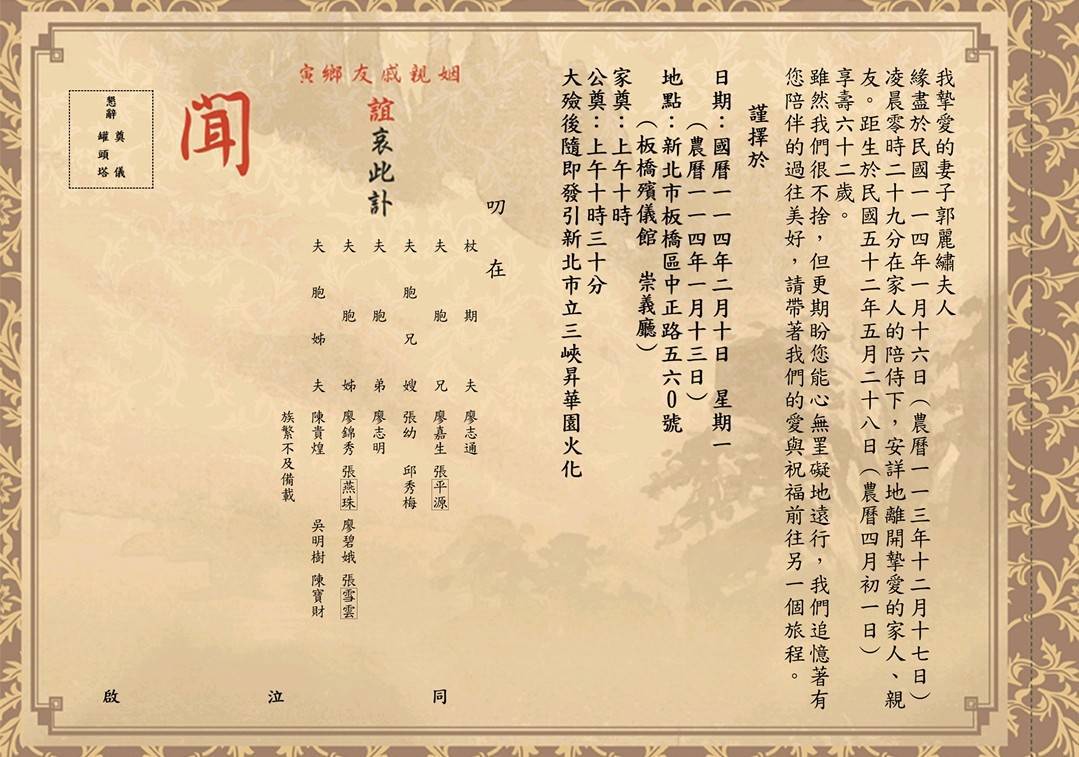 我摯愛的妻子郭麗繡夫人
緣盡於民國一一四年一月十六日（農曆一一三年十二月十七日）
凌晨零時二十九分在家人的陪侍下，安詳地離開摯愛的家人、親
友。距生於民國五十二年五月二十八日（農曆四月初一日）
享壽六十二歲。
雖然我們很不捨，但更期盼您能心無罣礙地遠行，我們追憶著有
您陪伴的過往美好，請帶著我們的愛與祝福前往另一個旅程。
謹擇於
日期：國曆一一四年二月十日 星期一
（農曆一一四年一月十三日）
地點：新北市板橋區中正路五六0號
（板橋殯儀館 崇義廳）
家奠：上午十時
公奠：上午十時三十分
大殮後隨即發引新北市立三峽昇華園火化
叨在
姻親戚友鄉寅
誼哀此訃
聞
杖期夫 廖志通
夫胞兄 廖嘉生 張平源
夫胞兄嫂 張幼 邱秀梅
夫胞弟 廖志明
夫胞姊 廖錦秀 張燕珠 廖碧娥 張雪雲
夫胞姊夫 陳貴煌 吳明樹 陳寶財
族繁不及備載
同泣啟
懇辭
奠儀
罐頭塔